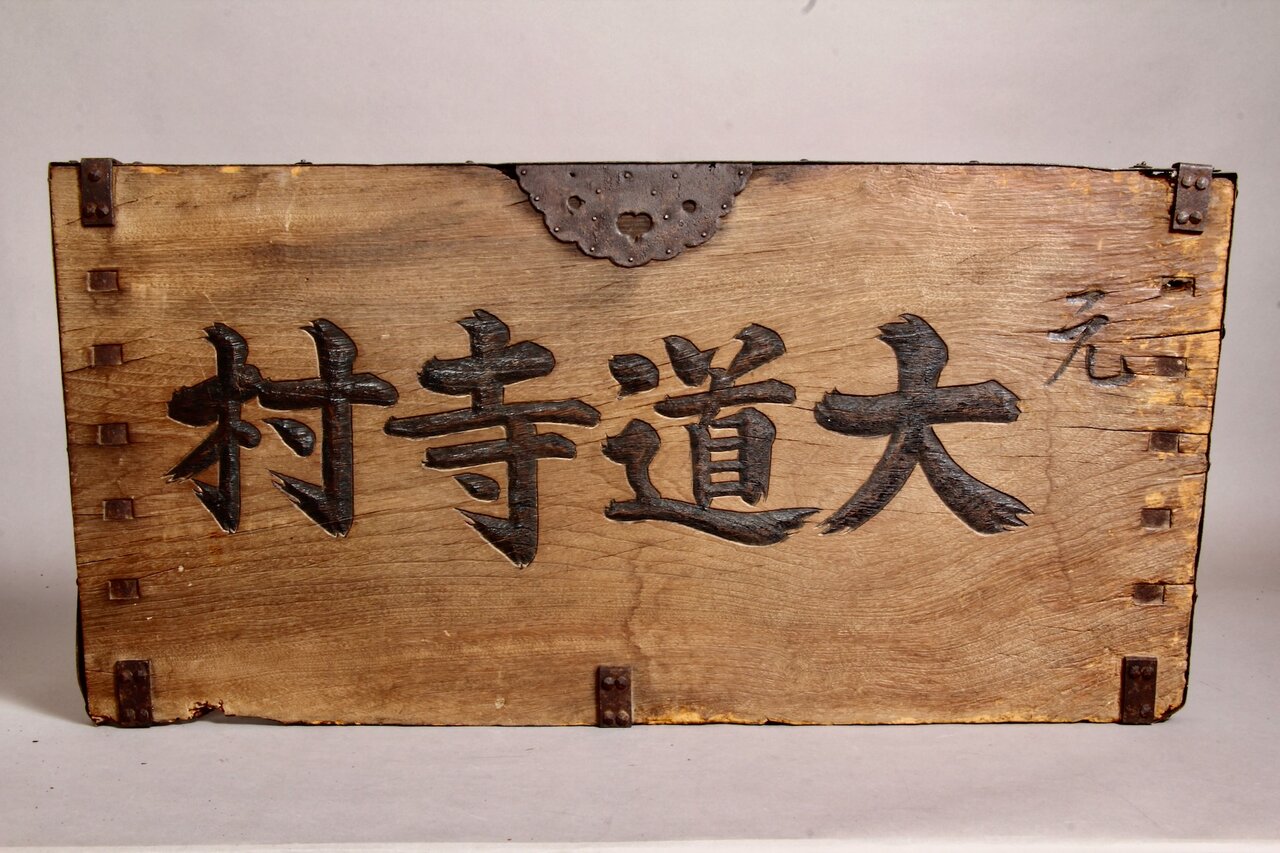 元
大道寺村